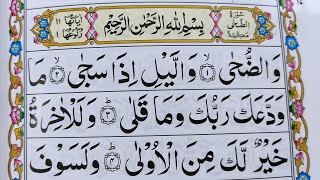 سُوْرَةُ الضُّحٰى مَكِّيَّةٌ
بِسْمِ اللّٰهِ الرَّحْمٰنِ الرَّحِيْمِ
اٰيَاتُهَا ١١ رُكُوْعُهَا ١
وَالضُّحٰى ۙ﴿١﴾ وَالَّيْلِ اِذَا سَجٰى ۙ﴿٢﴾ مَا
وَدَّعَكَ رَبُّكَ وَمَا قَلٰى ؕ﴿٣﴾ وَلَلْاٰخِرَةُ
خَيْرٌ لَّكَ مِنَ الْاُوْلٰى ؕ﴿٤﴾ وَلَسَوْفَ